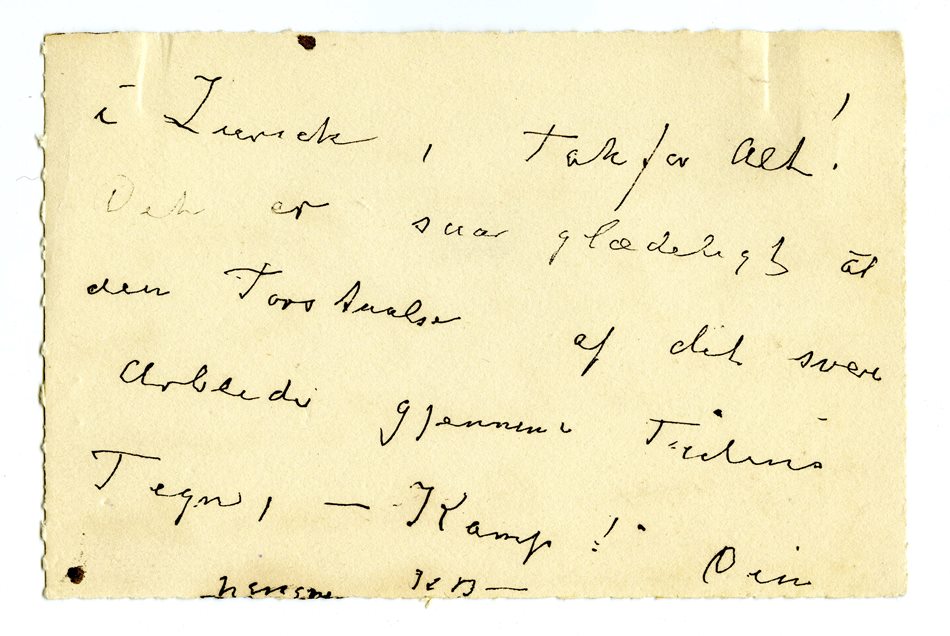 i Zurick, Tak for Alt!
Det er saa glædeligt at
den Forstaaelse af dit svære
Arbeide gjennem Tidens
Tegn, — Kamp! Din